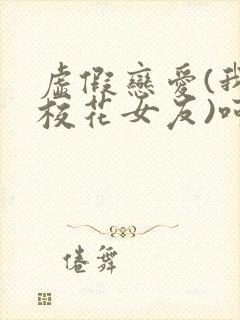 虛假戀愛(我
校花女友)呵
倦舞